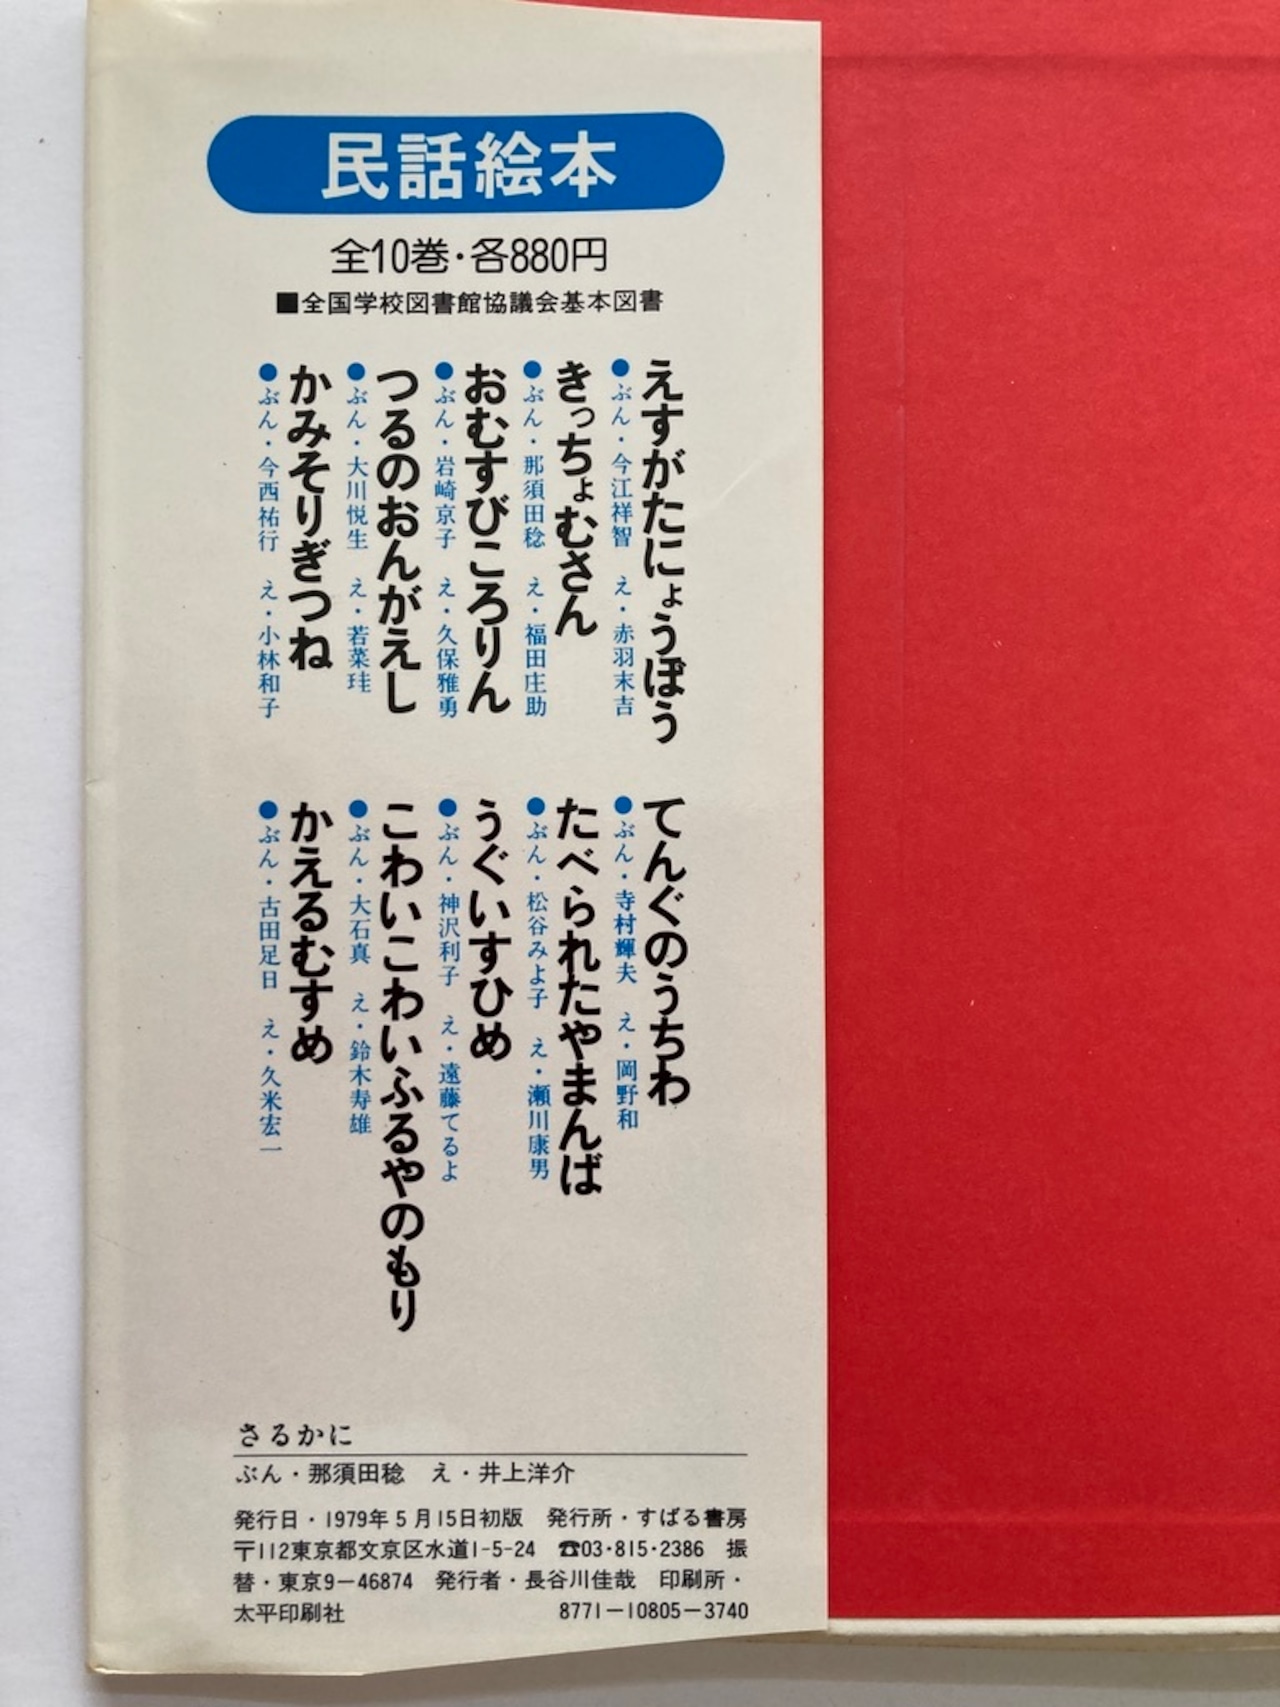 民話絵本
全10巻・各880円
■全国学校図書館協議会基本図書
えすがたにょうぼう
●ぶん・今江祥智 え・赤羽末吉
きっちょむさん
●ぶん・那須田稔 え・福田庄助
おむすびころりん
●ぶん・岩崎京子 え・久保雅勇
つるのおんがえし
●ぶん・大川悦生 え・若菜珪
かみそりぎつね
●ぶん・今西祐行 え・小林和子
てんぐのうちわ
●ぶん・寺村輝夫 え・岡野和
たべられたやまんば
●ぶん・松谷みよ子 え・瀬川康男
うぐいすひめ
●ぶん・神沢利子 え・遠藤てるよ
こわいこわいふるやのもり
●ぶん・大石真 え・鈴木寿雄
かえるむすめ
●ぶん・古田足日 え・久米宏一
さるかに
ぶん・那須田稔 え・井上洋介
発行日・1979年5月15日初版 発行所・すばる書房
〒112東京都文京区水道1-5-24 ☎03・815・2386 振
替・東京9−46874 発行者・長谷川佳哉 印刷所・
太平印刷社 8771−10805−3740